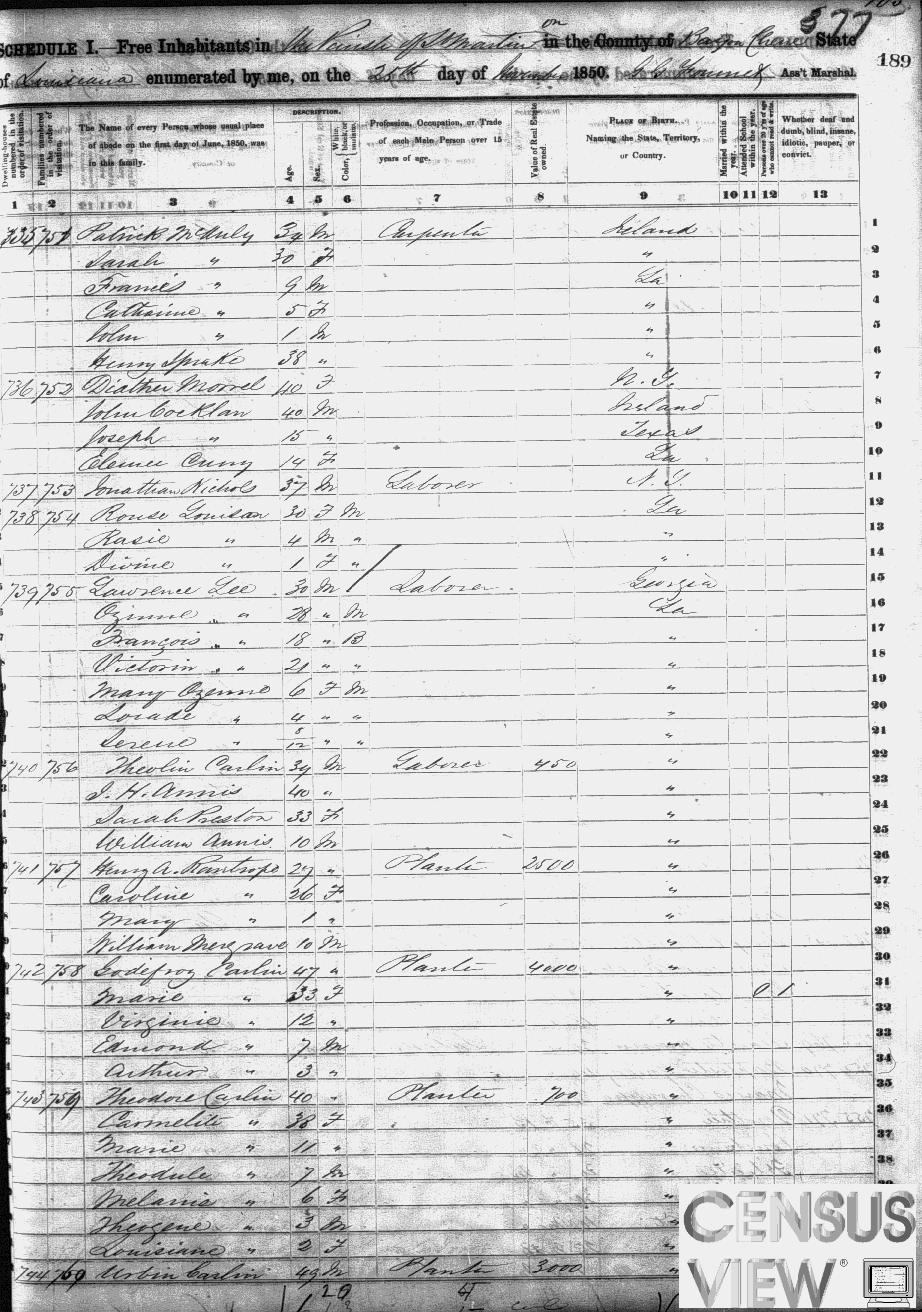 377
SCHEDULE I.—Free Inhabitants in the Parish of St Martin on in the County of Bayou Chene State
189
of Louisiana enumerated by me, on the 28th day of November 1850. Ass't Marshal.
Dwelling-houses numbered in the order of visitation. Families numbered in the order of visitation. The Name of every Person whose usual place of abode on the first day of June, 1850, was in this family. DESCRIPTION. Age. Sex. Color, White, black, or mulatto. Profession, Occupation, or Trade of each Male Person over 15 years of age. Value of Real Estate owned. PLACE OF BIRTH. Naming the State, Territory, or Country. Married within the year. Attended School within the year. Persons over 20 y'rs of age who cannot read & write. Whether deaf and dumb, blind, insane, idiotic, pauper, or convict.
1 2 3 4 5 6 7 8 9 10 11 12 13
735 751 Patrick McAnly 39 M Carpenter Ireland 1
Sarah " 30 F " 2
Francis " 9 M La 3
Catharine " 5 F " 4
John " 1 M " 5
Henry Sprake 38 " " 6
736 752 Diather Morrel 40 F N.Y. 7
John Cocklan 40 M Ireland 8
Joseph " 15 " Texas 9
Elenier Curry 14 F La 10
737 753 Jonathan Nichols 37 M Laborer N.Y 11
738 754 Rouse Louisan 30 F M La 12
Rasie " 4 M " " 13
Divine " 1 F " " 14
739 755 Lawrence Lee 30 M Laborer Georgia 15
Ozinne " 28 " M La 16
François " 18 " B " 17
Victorin " 21 " " " 18
Mary Ozenne 6 F M " 19
Lorade " 4 " " " 20
Serene " 8/12 " " " 21
740 756 Theolin Carlin 39 M Laborer 450 " 22
J. H. Annis 40 " " 23
Sarah Preston 33 F " 24
William Annis 10 M " 25
741 757 Henry A. Rantrope 27 " Planter 2500 " 26
Caroline " 26 F " 27
Mary " 1 " " 28
William Meregrave 10 M " 29
742 758 Godefroy Carlin 47 " Planter 4000 " 30
Marie " 33 F " 0 1 31
Virginie " 12 " " 32
Edmond " 7 M " 33
Arthur " 3 " " 34
743 759 Theodore Carlin 40 " Planter 700 " 35
Carmelite " 38 F " 36
Marie " 11 " " 37
Theodule " 7 M " 38
Melanie " 6 F "
Theogene " 3 M "
Louisiane " 2 F "
744 760 Urbin Carlin 49 M Planter 3000 "
CENSUS
VIEW®